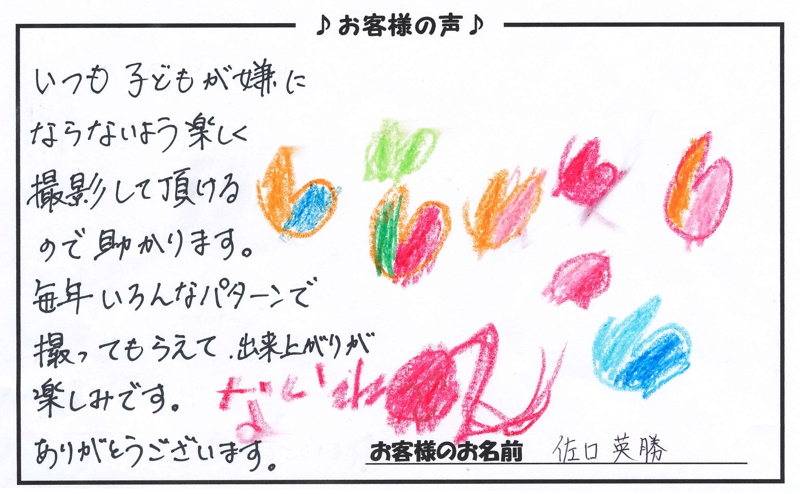 ♪お客様の声♪
いつも子どもが嫌に
ならないよう楽しく
撮影して頂ける
ので助かります。
毎年いろんなパターンで
撮ってもらえて、出来上がりが
楽しみです。
ありがとうございます。
お客様のお名前 佐口英勝